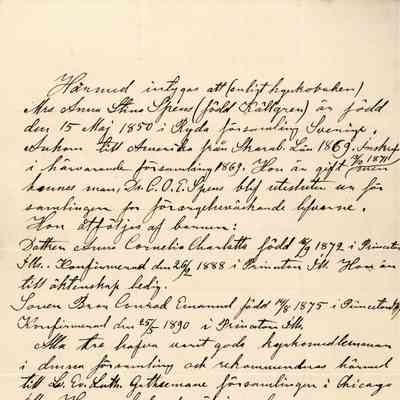 Härmed intygas att (enligt kyrkoboken)
Mrs Anna Stina Spens (född Källgren) är född
den 15 Maj 1850 i Ryda församling Sverige.
Ankom till Amerika från Skarab. Län 1869. Inskref
i härvarande församling 1869. Hon är gift 1871 men
hennes man, Dr. C. O. E. Spens blef utesluten ur för
samlingen for förargelseväckande lefverne.
Hon åtföljes af barnen:
Dottren Anna Cornelia Charlotta född 1872 i Princeton
Ills. Konfirmerad den 1888 i Princeton Ill. Hon är
till äktenskap ledig.
Sonen Bror Conrad Emanuel född 1875 i Princeton
Konfirmerad den 25/5 1890 i Princeton Ills.
Alla tre hafva varit goda kyrkomedlemmar
i denna församling och rekommenderas härmed
till Ev. Luth. Gethsemane församlingen i Chicago